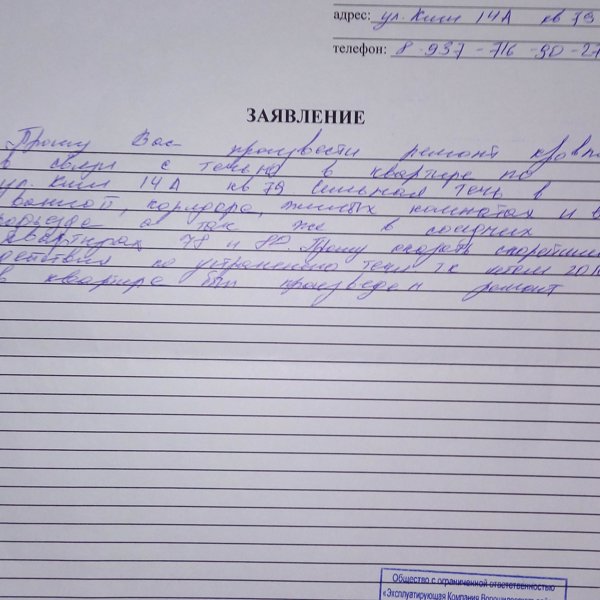 адрес: ул. Ким 14А кв 79
телефон: 8-937-716-90-27
ЗАЯВЛЕНИЕ
Прошу Вас произвести ремонт кровли
в связи с течью в квартире по
ул. Ким 14А кв 79 Сильная течь в
ванной, коридора, жилых комнатах и в
а так же в соседних
квартирах 78 и 80. Прошу оказать скорейшие
действия по устранению течи тк летом
в квартире был произведен ремонт
Общество с ограниченной ответственностью
«Эксплуатирующая Компания